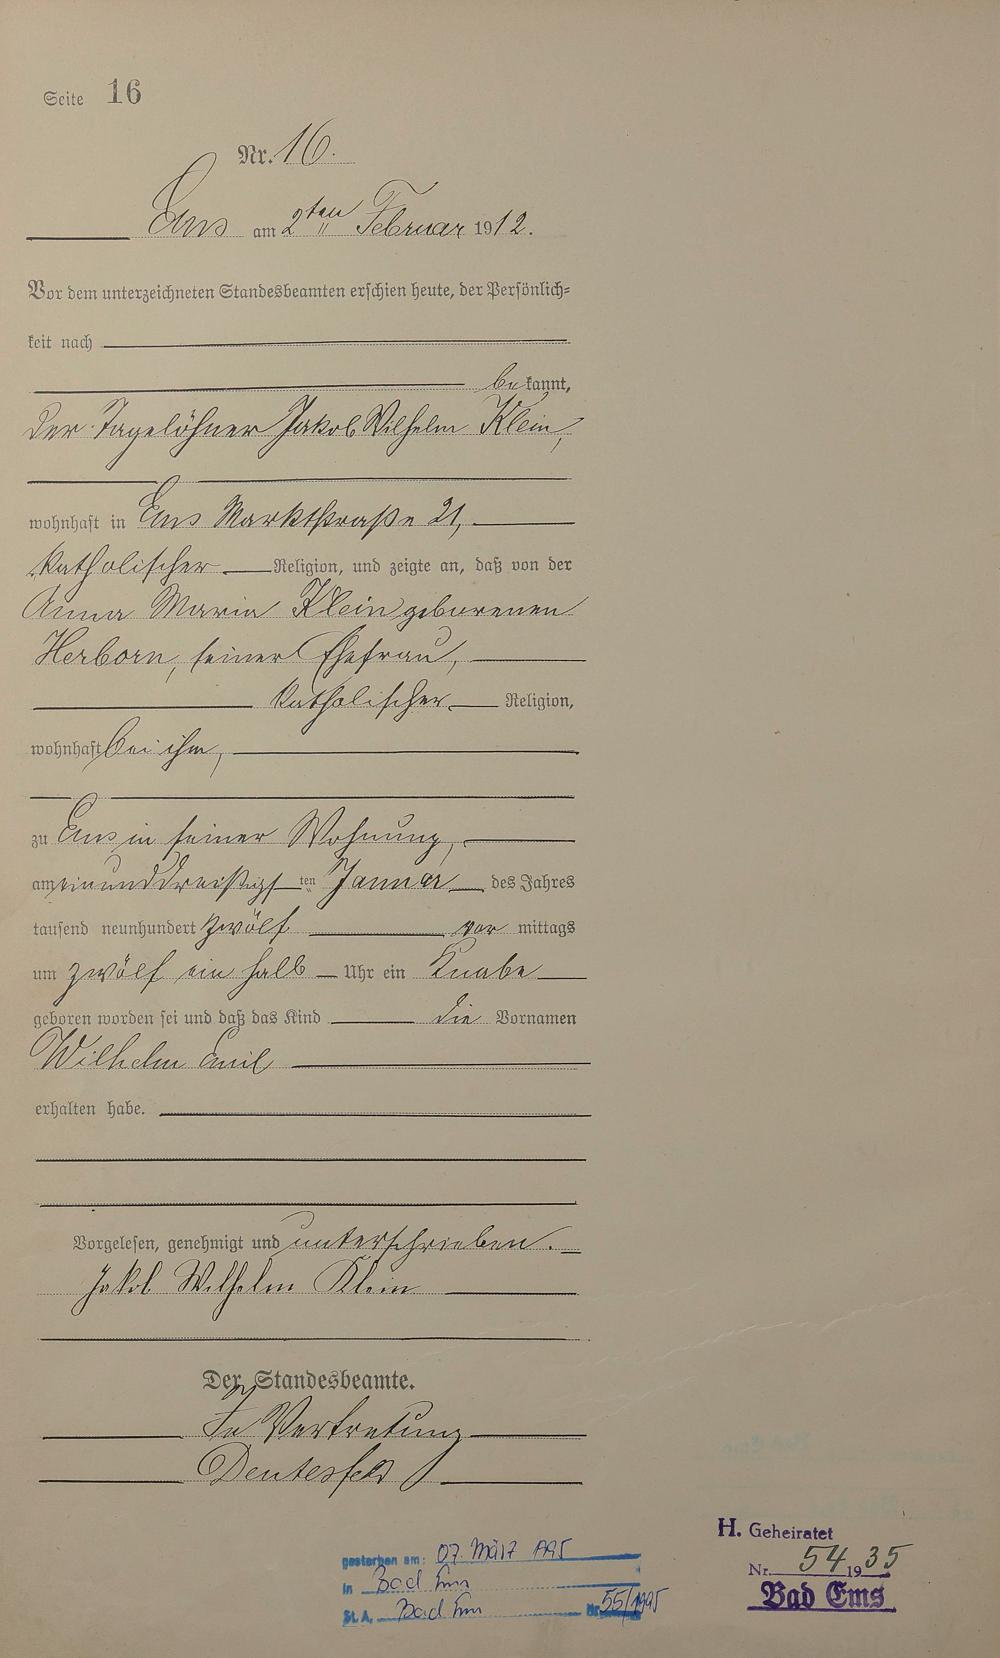 Seite 16
Nr. 16.
Ems am 2ten Februar 1912.
Vor dem unterzeichneten Standesbeamten erschien heute, der Persönlich-
keit nach
bekannt,
der Tagelöhner Jakob Wilhelm Klein,
wohnhaft in Ems Marktstraße 21,
katholischer Religion, und zeigte an, daß von der
Anna Maria Klein geborenen
Herborn, seiner Ehefrau,
katholischer Religion,
wohnhaft bei ihm,
zu Ems in seiner Wohnung,
am einunddreißigsten Januar des Jahres
tausend neunhundert zwölf vor mittags
um zwölf ein halb Uhr ein Knabe
geboren worden sei und daß das Kind die Vornamen
Wilhelm Emil
erhalten habe.
Vorgelesen, genehmigt und unterschrieben.
Jakob Wilhelm Klein
Der Standesbeamte.
In Vertretung
H. Geheiratet
Nr. 54 1935
Bad Ems
gestorben am: 07. März 1995
in Bad Ems
St. A. Bad Ems Nr. 55/1995